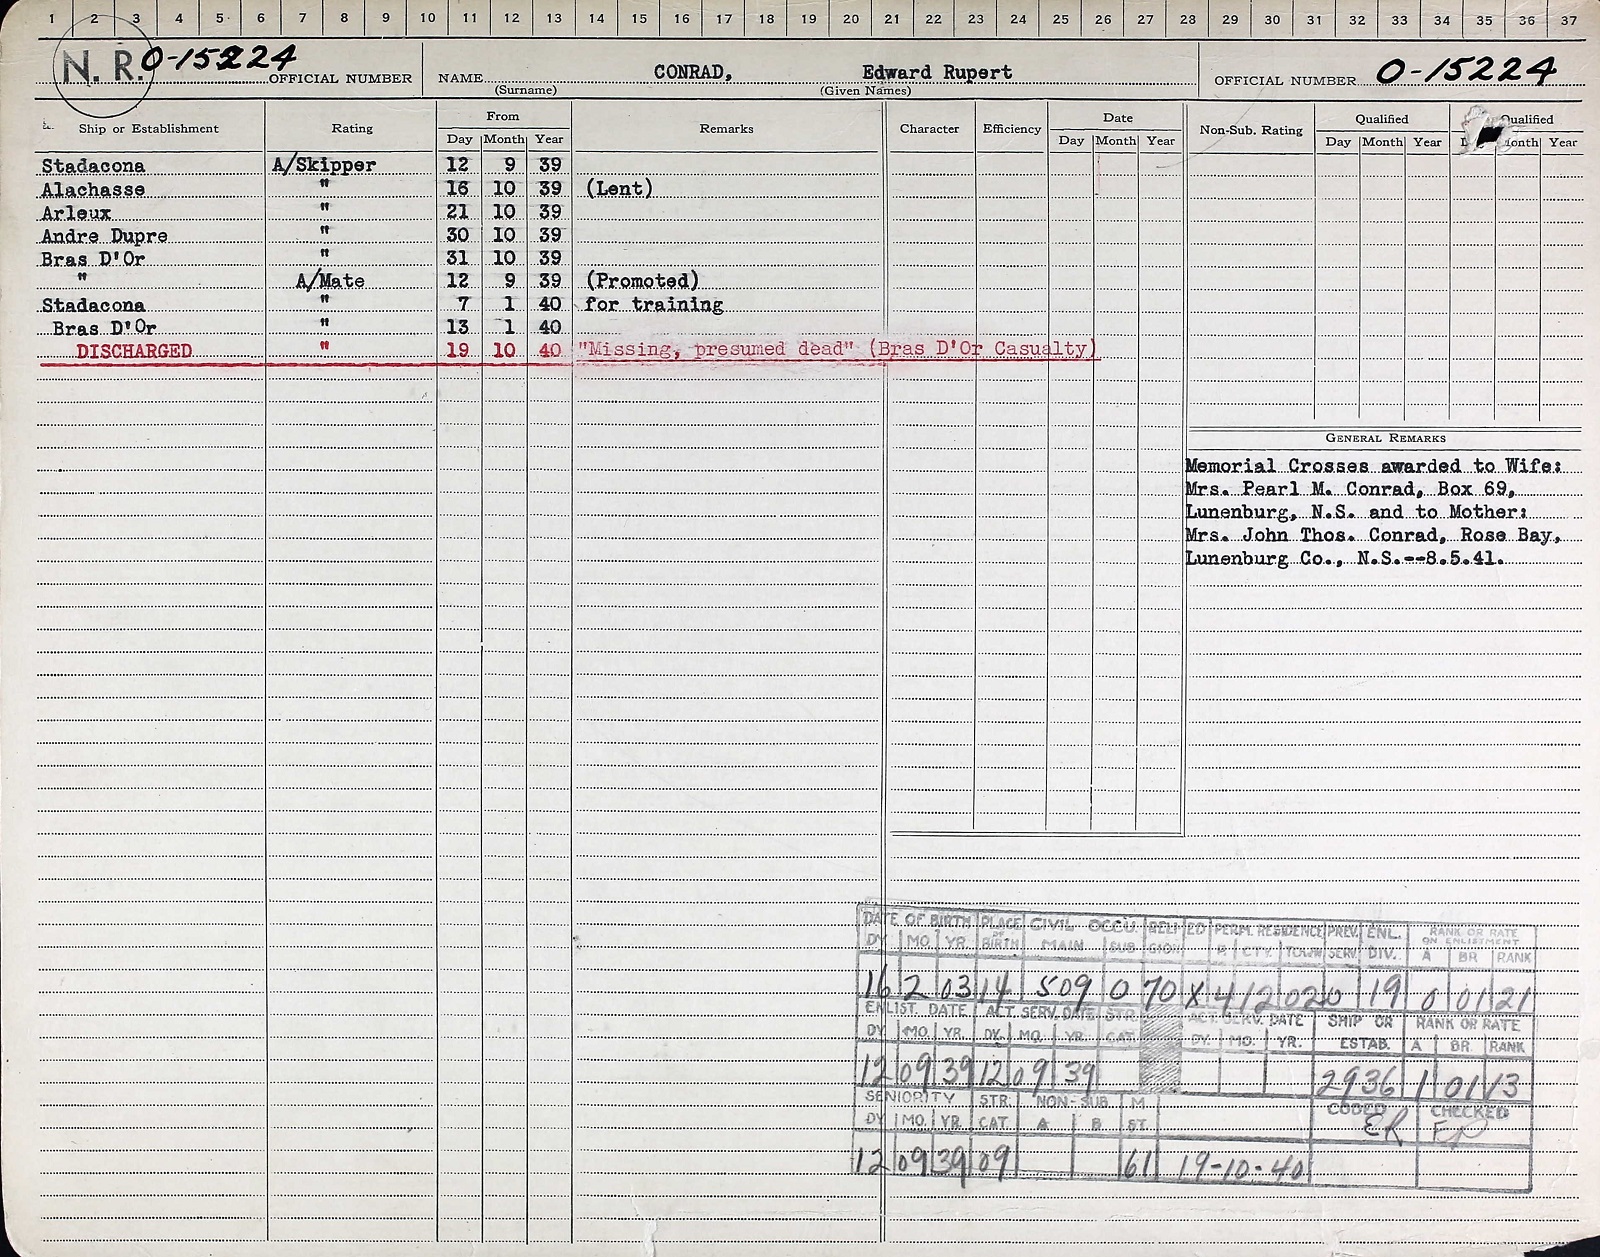 1 2 3 4 5 6 7 8 9 10 11 12 13 14 15 16 17 18 19 20 21 22 23 24 25 26 27 28 29 30 31 32 33 34 35 36 37
N. R. O-15224 OFFICIAL NUMBER NAME CONRAD, Edward Rupert OFFICIAL NUMBER O-15224
(Surname) (Given Names)
Ship or Establishment Rating From Remarks Character Efficiency Date Non-Sub. Rating Qualified Qualified
Day Month Year Day Month Year Day Month Year Month Year
Stadacona A/Skipper 12 9 39
Alachasse " 16 10 39 (Lent)
Arleux " 21 10 39
Andre Dupre " 30 10 39
Bras D'Or " 31 10 39
" A/Mate 12 9 39 (Promoted)
Stadacona " 7 1 40 for training
Bras D'Or " 13 1 40
DISCHARGED " 19 10 40 "Missing, presumed dead" (Bras D'Or Casualty)
GENERAL REMARKS
Memorial Crosses awarded to Wife:
Mrs. Pearl M. Conrad, Box 69,
Lunenburg, N.S. and to Mother:
Mrs. John Thos. Conrad, Rose Bay,
Lunenburg Co., N.S.--8.5.41.
DATE OF BIRTH PLACE OF BIRTH CIVIL OCCU. RELIGION ED PERM. RESIDENCE PREV. SERV. ENL. DIV. RANK OR RATE ON ENLISTMENT
DY. MO. YR. MAIN SUB CTY. TOWN A BR RANK
16 2 03 14 509 0 70 X 4 12 02 0 19 0 01 21
ENLIST. DATE ACT. SERV. DATE STR. CAT. ACT. SERV. DATE SHIP OR ESTAB. RANK OR RATE
DY. MO. YR. DY. MO. YR. DY. MO. YR. A BR. RANK
12 09 39 12 09 39 2936 1 01 13
SENIORITY STR. CAT. NON-SUB M. ST. CODED ER CHECKED
DY. MO. YR. A B
12 09 39 09 61 19-10-40